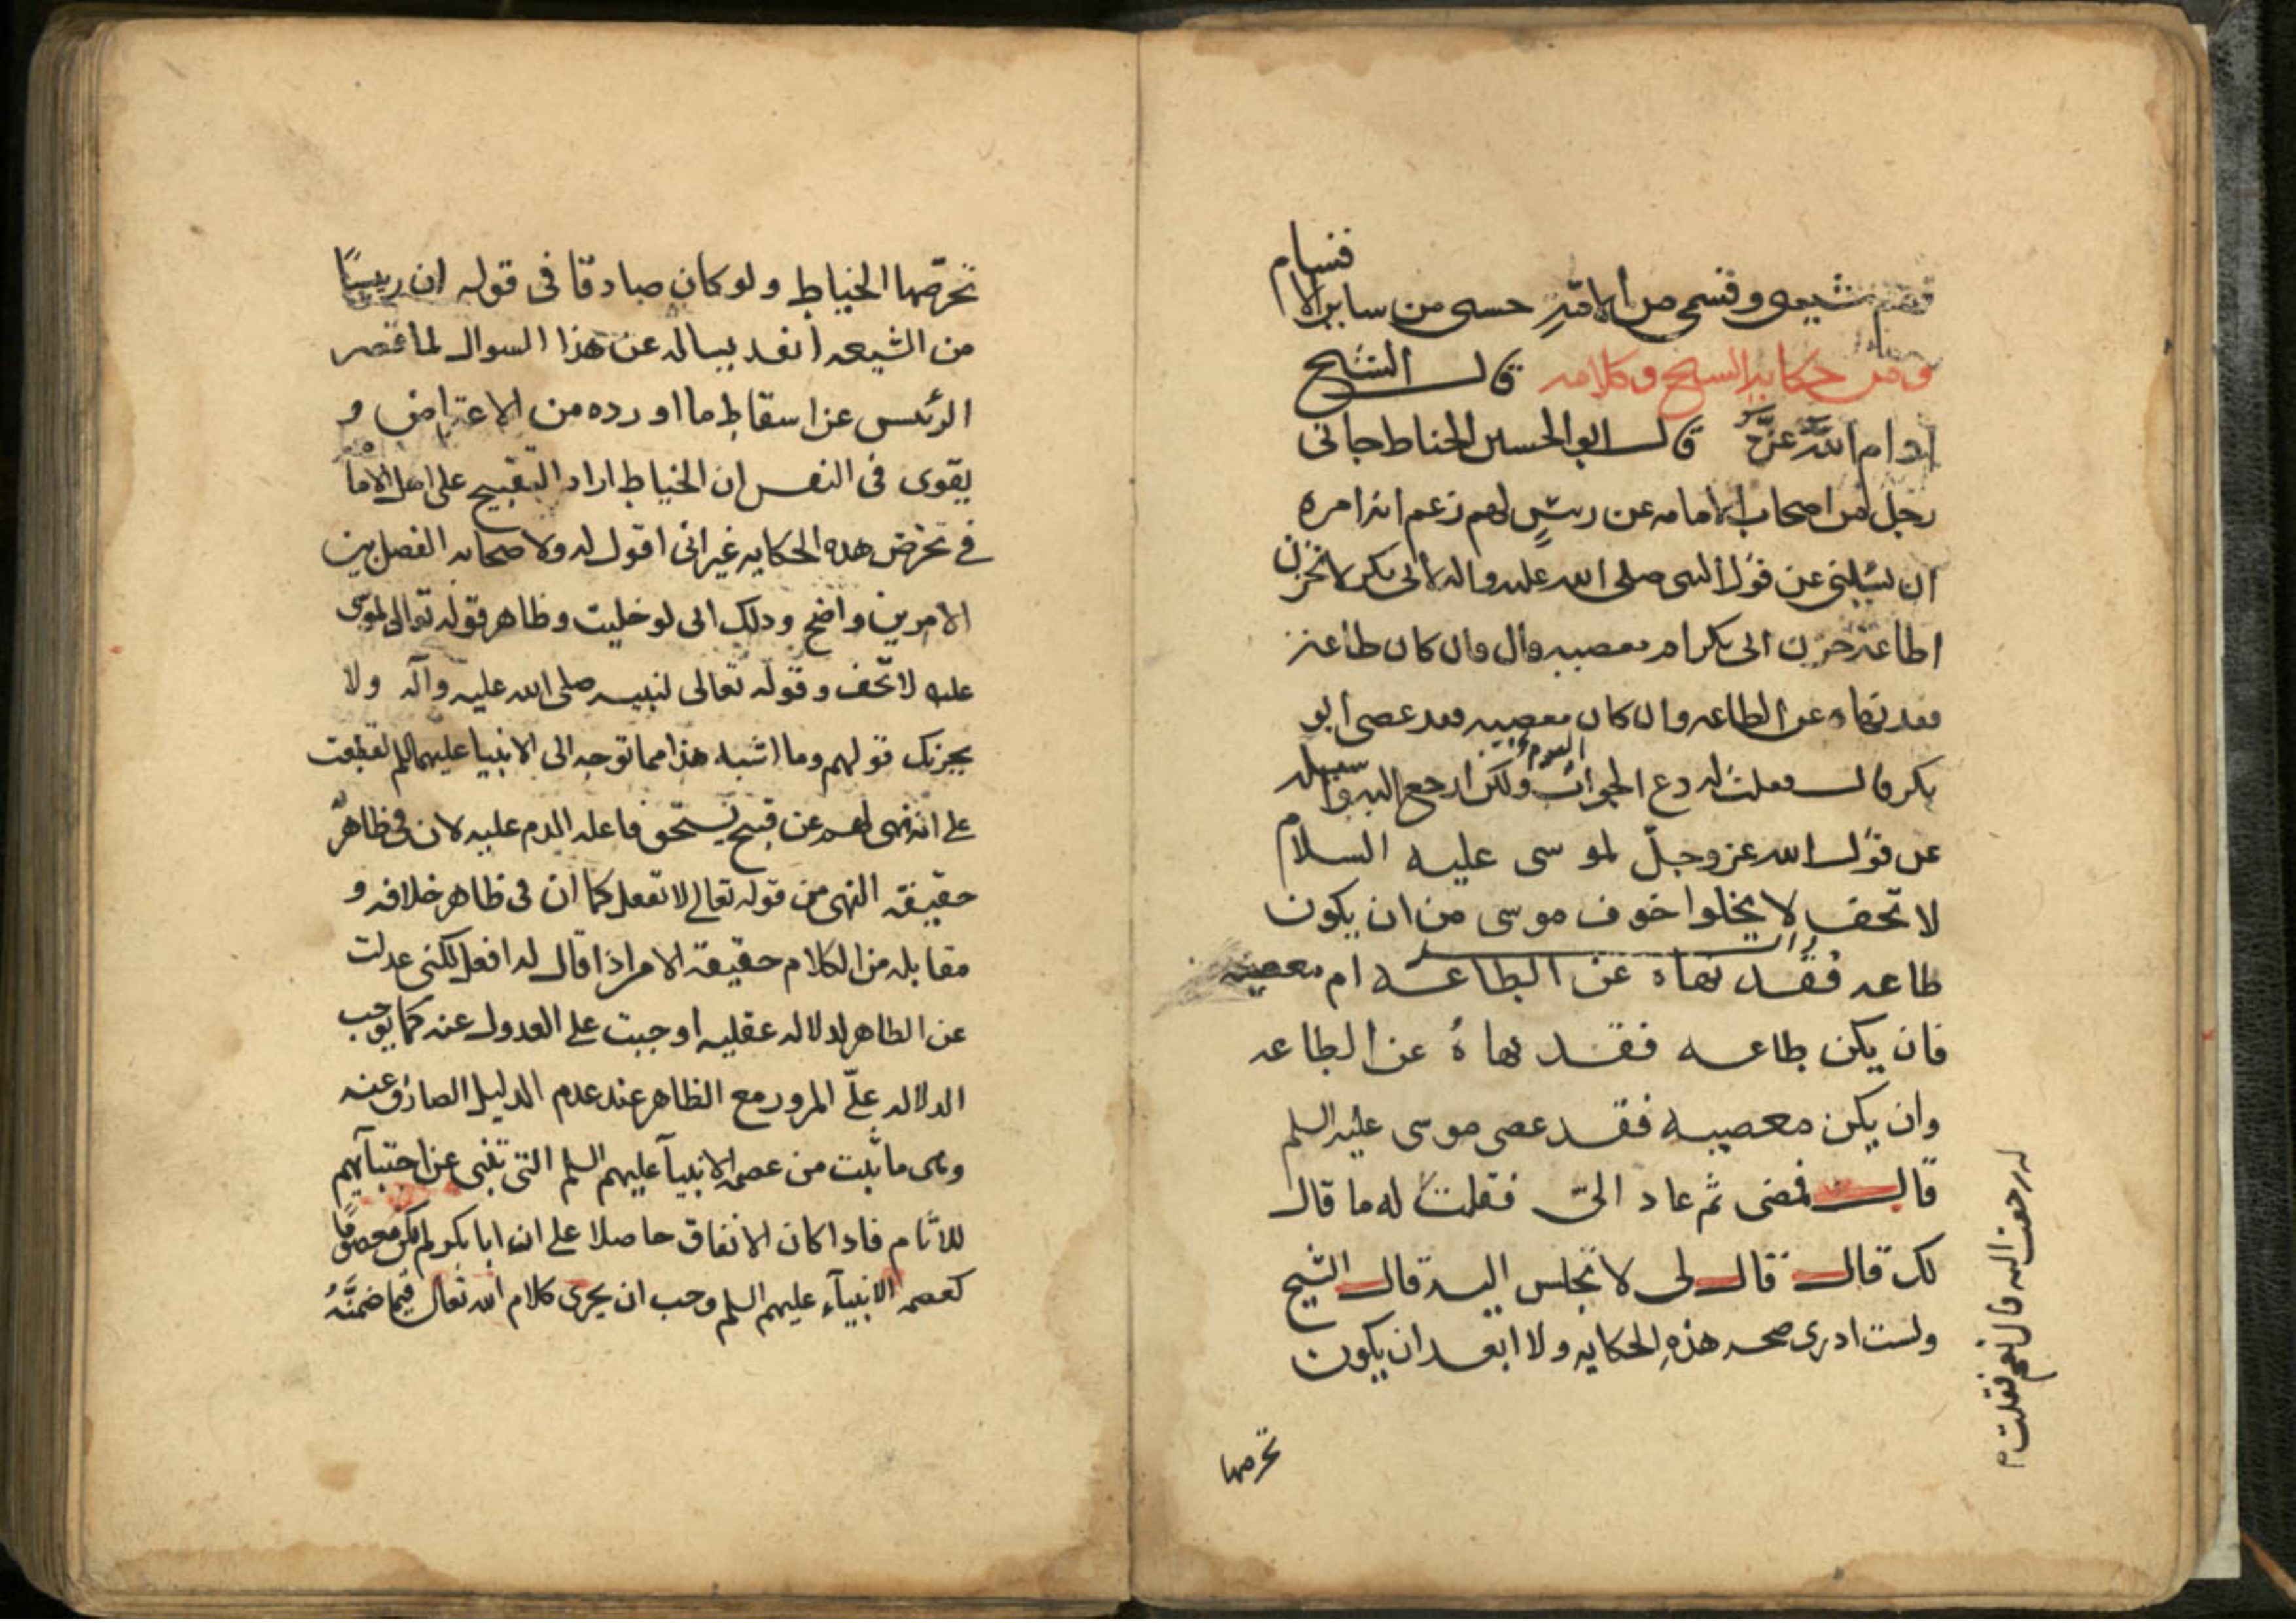 فنسام
شيعى وقسمى من الامة حسى من ساير الا
ومن حكايه الشيخ وكلامه قال الشيخ
ادام الله عزه قال ابو الحسين الخياط جانى
رجل من اصحاب الامامه عن رئيس لهم زعم انه امره
ان يسئلنى عن قول النبى صلى الله عليه واله لابى بكر لا تحزن
اطاعة حزن ابى بكر ام معصيه قال وان كان طاعة
فقد نهاه عن الطاعه وان كان معصيه فقد عصى ابو
بكر قال فقلت له دع الجواب اليوم ولكن ارجع اليه وسله
عن قول الله عز وجل لموسى عليه السلام
لا تخف لا يخلوا خوف موسى من ان يكون
طاعه فقد نهاه عن الطاعه ام معصيه
فان يكن طاعه فقد نهاهُ عن الطاعه
وان يكن معصيه فقد عصى موسى عليه السلم
قال فمضى ثم عاد الىّ فقلت له ما قال
لك قال قال لى لا تجلس اليه قال الشيخ
ولست ادرى صحه هذهِ الحكايه ولا ابعد ان يكون
له رجعت اليه قال نعم فقلت
تخرصها
تخرّصها الخياط ولو كان صادقا فى قوله ان ريسًا
من الشيعه انفد يساله عن هذا السوال لما قصر
الرئيس عن اسقاط ما اورده من الاعتراض و
يقوى فى النفس ان الخياط اراد التقبيح على اهل الاما
فى تخرض هده الحكايه غير انى اقول له ولاصحابه الفصل بين
الامرين واضح ودلك انى لو خليت وظاهر قوله تعالى لموسى
عليه لا تخف وقوله تعالى لنبيه صلى الله عليه وآله ولا
يحزنك قولهم وما اشبه هذا مما توجه الى الانبيا عليهم السلم لقطعت
على انه نهى لهم عن قبيح يستحق فاعله الدم عليه لان فى ظاهره
حقيقة النهى من قوله تعالى لا تفعل كما ان فى ظاهر خلافه و
مقابله من الكلام حقيقة الامر اذا قال له افعل لكنى عدلت
عن الظاهر لدلاله عقليه اوجبت على العدول عنه كما يوجب
الدلاله علىّ المرور مع الظاهر عند عدم الدليل الصارف عنه
وهى ما ثبت من عصمه الانبيآ عليهم السلم التى تنبى عن اجتبآيهم
للاثام فادا كان الاتفاق حاصلا على ان ابا بكر لم يكن معصومًا
كعصمه الانبيآء عليهم السلم وجب ان يجرى كلام الله تعالى فيما ضمنَّهُ